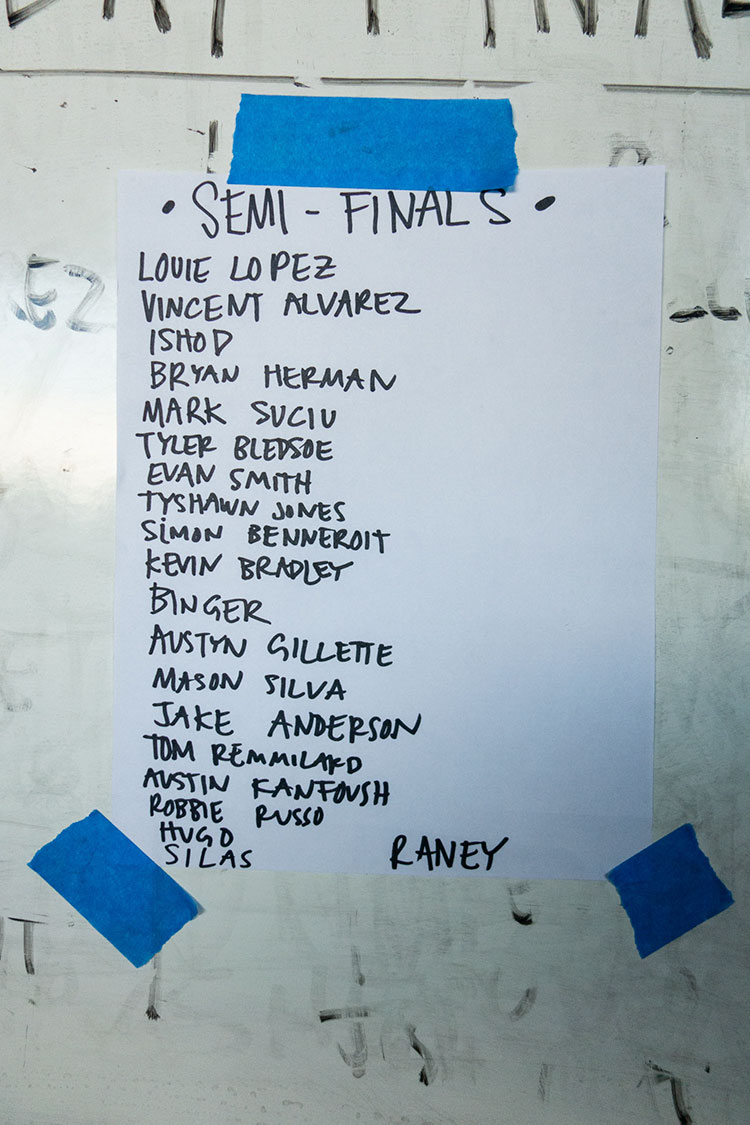 • SEMI - FINALS •
LOUIE LOPEZ
VINCENT ALVAREZ
ISHOD
BRYAN HERMAN
MARK SUCIU
TYLER BLEDSOE
EVAN SMITH
TYSHAWN JONES
SIMON BENNEROIT
KEVIN BRADLEY
BINGER
AUSTYN GILLETTE
MASON SILVA
JAKE ANDERSON
TOM REMMILARD
AUSTIN KANFOUSH
ROBBIE RUSSO
HUGO
SILAS RANEY